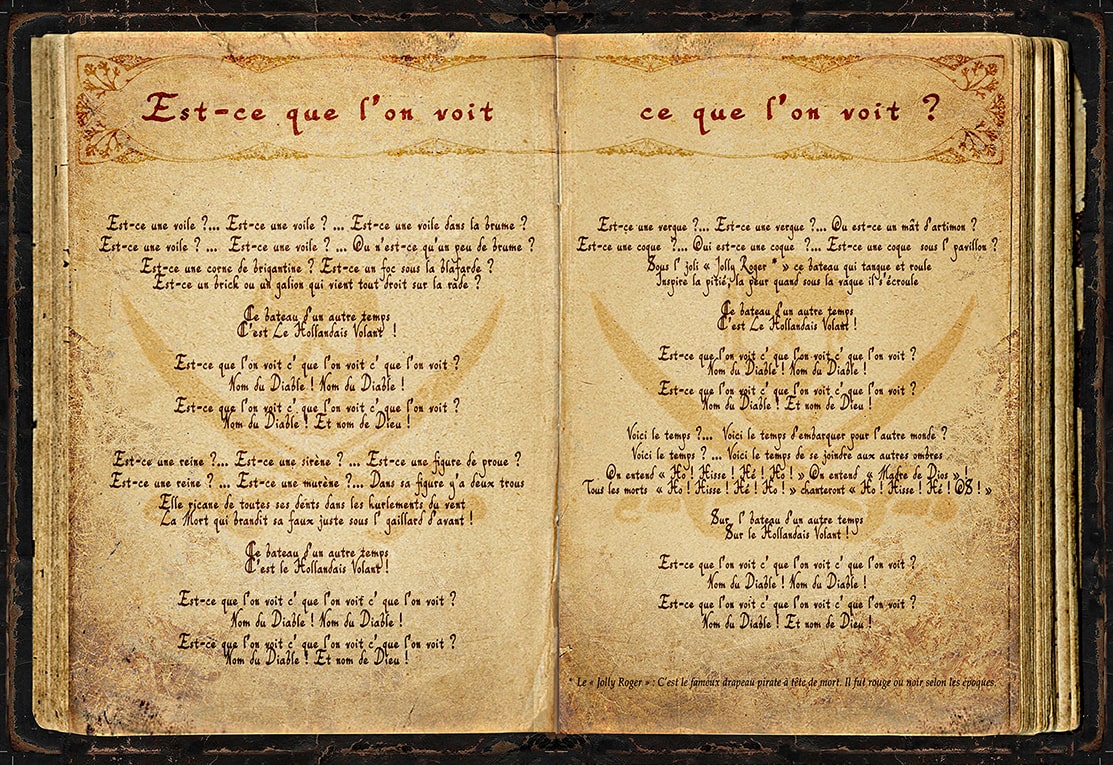 Est-ce que l'on voit ce que l'on voit ?
Est-ce une voile ?... Est-ce une voile ? ... Est-ce une voile dans la brume ?
Est-ce une voile ? ... Est-ce une voile ? ... Ou n'est-ce qu'un peu de brume ?
Est-ce une corne de brigantine ? Est-ce un foc sous la blafarde ?
Est-ce un brick ou un galion qui vient tout droit sur la rade ?
Ce bateau d'un autre temps
C'est Le Hollandais Volant !
Est-ce que l'on voit c' que l'on voit c' que l'on voit ?
Nom du Diable ! Nom du Diable !
Est-ce que l'on voit c' que l'on voit c' que l'on voit ?
Nom du Diable ! Et nom de Dieu !
Est-ce une reine ?... Est-ce une sirène ? ... Est-ce une figure de proue ?
Est-ce une reine ? ... Est-ce une murène ?... Dans sa figure y'a deux trous
Elle ricane de toutes ses dents dans les hurlements du vent
La Mort qui brandit sa faux juste sous l' gaillard d'avant !
Ce bateau d'un autre temps
C'est le Hollandais Volant !
Est-ce que l'on voit c' que l'on voit c' que l'on voit ?
Nom du Diable ! Nom du Diable !
Est-ce que l'on voit c' que l'on voit c' que l'on voit ?
Nom du Diable ! Et nom de Dieu !
Est-ce une vergue ?... Est-ce une vergue ?... Ou est-ce un mât d'artimon ?
Est-ce une coque ?... Oui est-ce une coque ?... Est-ce une coque sous l' pavillon ?
Sous l' joli « Jolly Roger * » ce bateau qui tangue et roule
Inspire la pitié, la peur quand sous la vague il s'écroule
Ce bateau d'un autre temps
C'est Le Hollandais Volant !
Est-ce que l'on voit c' que l'on voit c' que l'on voit ?
Nom du Diable ! Nom du Diable !
Est-ce que l'on voit c' que l'on voit c' que l'on voit ?
Nom du Diable ! Et nom de Dieu !
Voici le temps ?... Voici le temps d'embarquer pour l'autre monde ?
Voici le temps ? ... Voici le temps de se joindre aux autres ombres
On entend « Ho ! Hisse ! Hé ! Ho ! » On entend « Madre de Dios » !
Tous les morts « Ho ! Hisse ! Hé ! Ho ! » chanteront « Ho ! Hisse ! Hé ! OS ! »
Sur l' bateau d'un autre temps
Sur le Hollandais Volant !
Est-ce que l'on voit c' que l'on voit c' que l'on voit ?
Nom du Diable ! Nom du Diable !
Est-ce que l'on voit c' que l'on voit c' que l'on voit ?
Nom du Diable ! Et nom de Dieu !
* Le « Jolly Roger » : C'est le fameux drapeau pirate à tête de mort. Il fut rouge ou noir selon les époques.